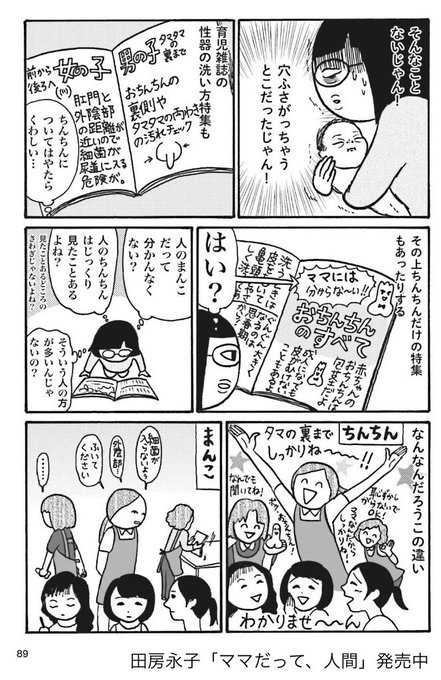 そんなこと
ないじゃん！
穴ふさがっちゃう
とこだったじゃん！
育児雑誌の
性器の洗い方特集も
男の子
タマタマの
裏まで
おちんちんの
裏側や
タマタマの両わき
の汚れチェック
女の子
前から
後ろへ
肛門と
外陰部
の距離が
近いので
細菌が
尿道に入る
危険が。
ちんちんに
ついてはやたら
くわしい…
その上ちんちんだけの特集
もあったりする
ママには
分からな〜い!!
おちんちん
のすべて
赤ちゃんの
おちんちんは
はい？
人のまんこ
だって
分かんなく
ない？
人のちんちん
はじっくり
見たことある
よね？
見たことあるどころの
さわぎじゃないよね？
そういう人の方
が多いんじゃ
ないの？
なんなんだろうこの違い
ちんちん
タマの裏まで
しっかりね〜〜!!
なんでも
聞いてね！
わかりませ〜〜ん
まんこ
細菌が
入らないよう
外陰部…
ふいて
ください
……
89
田房永子「ママだって、人間」発売中